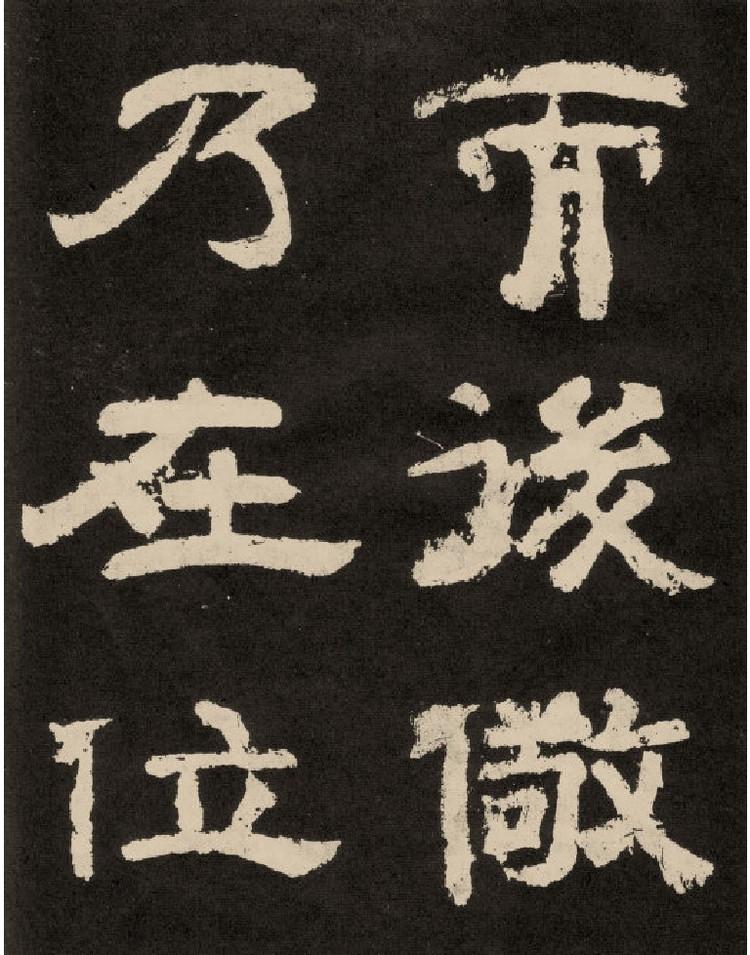 而後儆
乃在位